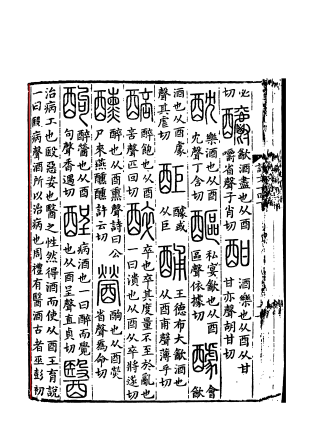 必切釂歓酒盡也从酉嚼省聲子肖切酣酒樂也从酉从甘甘亦聲胡甘切
酖樂酒也从酉冘聲丁含切醧私宴歓也从酉區聲依據切醵會歓
酒也从酉豦聲其虐切䣰醵或从巨酺王德布大歓酒也从酉甫聲薄乎切
醅醉飽也从酉咅聲匹回切醉卒也卒其度量不至於亂也一曰潰也从酉从卒將遂切
醺醉也从酉熏聲詩曰公尸來燕醺醺許云切醟酌也从酉熒省聲爲命切
䣱醉醟也从酉句聲香遇切酲病酒也一曰醉而覺也从酉呈聲直貞切醫
治病工也殹惡姿也醫之性然得酒而使从酉王育說
一曰殹病聲酒所以治病也周禮有醫酒古者巫彭初